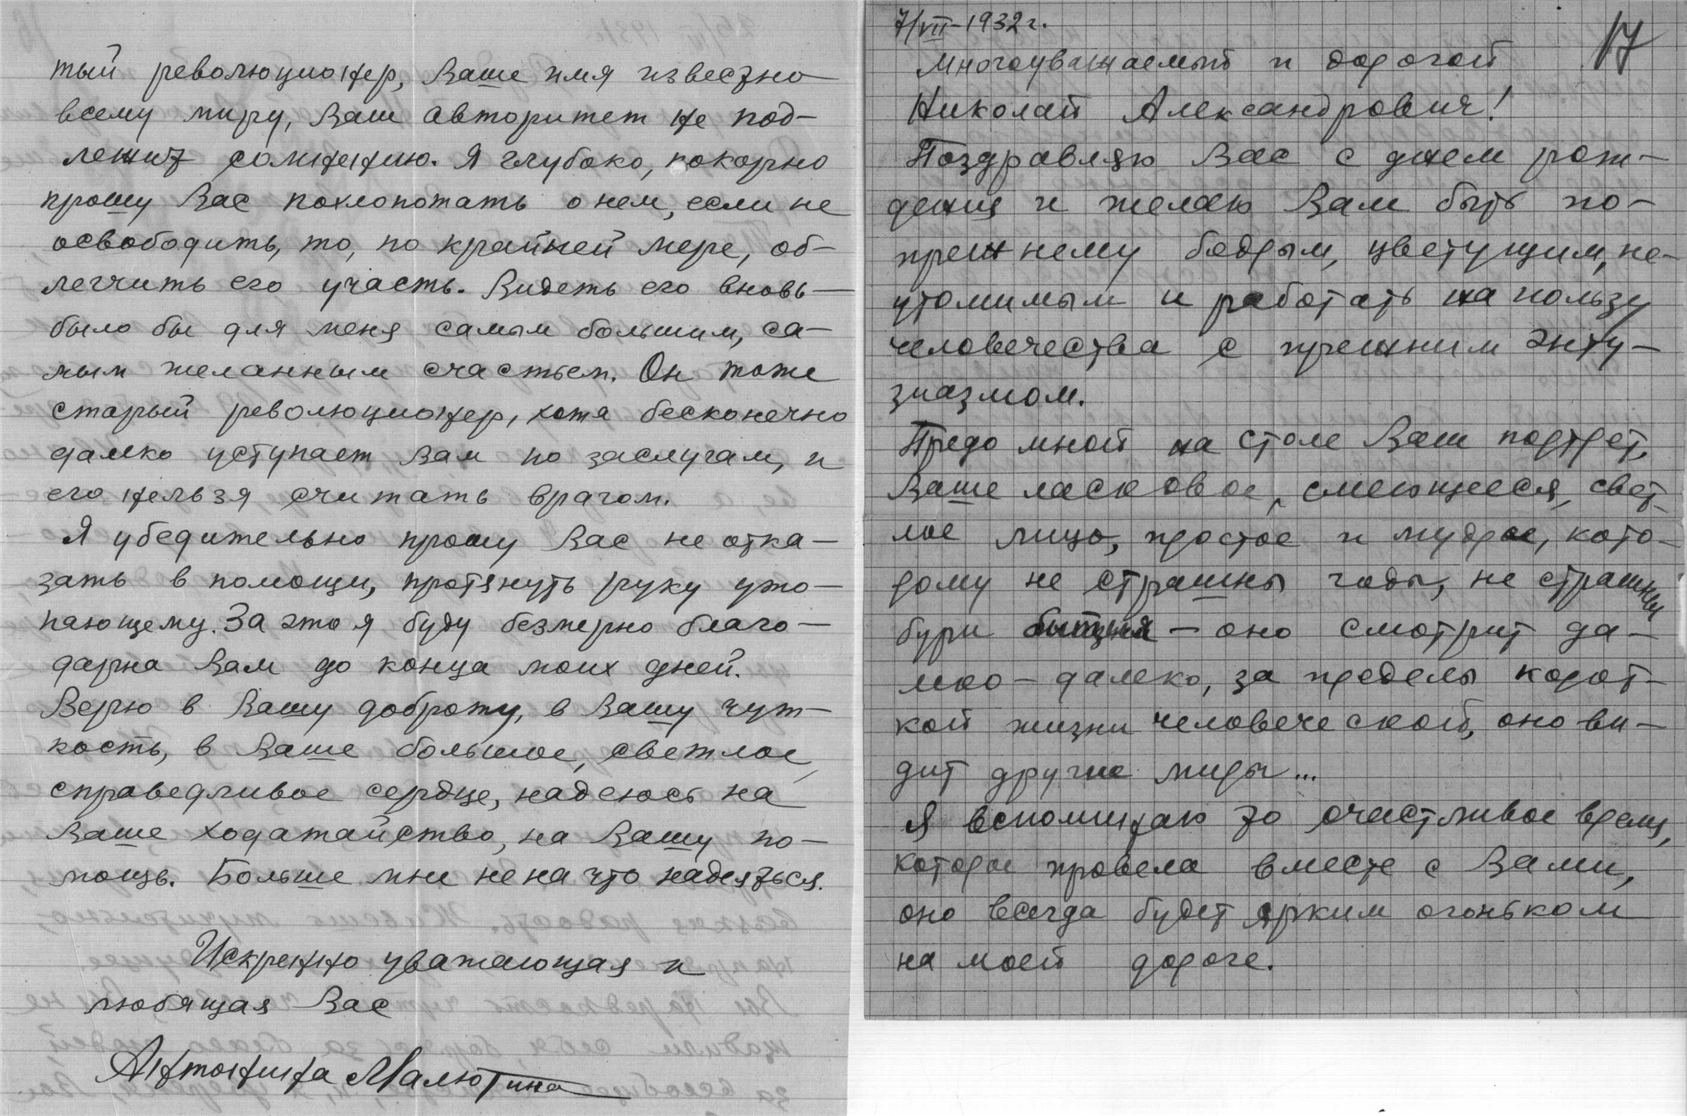 тый революционер, Ваше имя известно
всему миру, Ваш авторитет не под-
лежит сомнению. Я глубоко, покорно
прошу Вас похлопотать о нем, если не
освободить, то, по крайней мере, об-
легчить его участь. Видеть его вновь —
было бы для меня самым большим, са-
мым желанным счастьем. Он тоже
старый революционер, хотя бесконечно
далеко уступает Вам по заслугам, и
его нельзя считать врагом.
Я убедительно прошу Вас не отка-
зать в помощи, протянуть руку уто-
пающему. За это я буду безмерно благо-
дарна Вам до конца моих дней.
Верю в Вашу доброту, в Вашу чут-
кость, в Ваше большое, светлое,
справедливое сердце, надеюсь на
Ваше ходатайство, на Вашу по-
мощь. Больше мне не на что надеяться.
Искренно уважающая и
любящая Вас
Антонина Малютина
7/VII-1932 г.
17
Многоуважаемый и дорогой
Николай Александрович!
Поздравляю Вас с днем рож-
дения и желаю Вам быть по-
прежнему бодрым, цветущим, не-
утомимым и работать на пользу
человечества с прежним энту-
зиазмом.
Предо мной на столе Ваш портрет,
Ваше ласковое, смеющееся, свет-
лое лицо, простое и мудрое, кото-
рому не страшны годы, не страшны
бури бытия — оно смотрит да-
леко-далеко, за пределы корот-
кой жизни человеческой, оно ви-
дит другие миры...
Я вспоминаю то счастливое время,
которое провела вместе с Вами,
оно всегда будет ярким огоньком
на моей дороге.